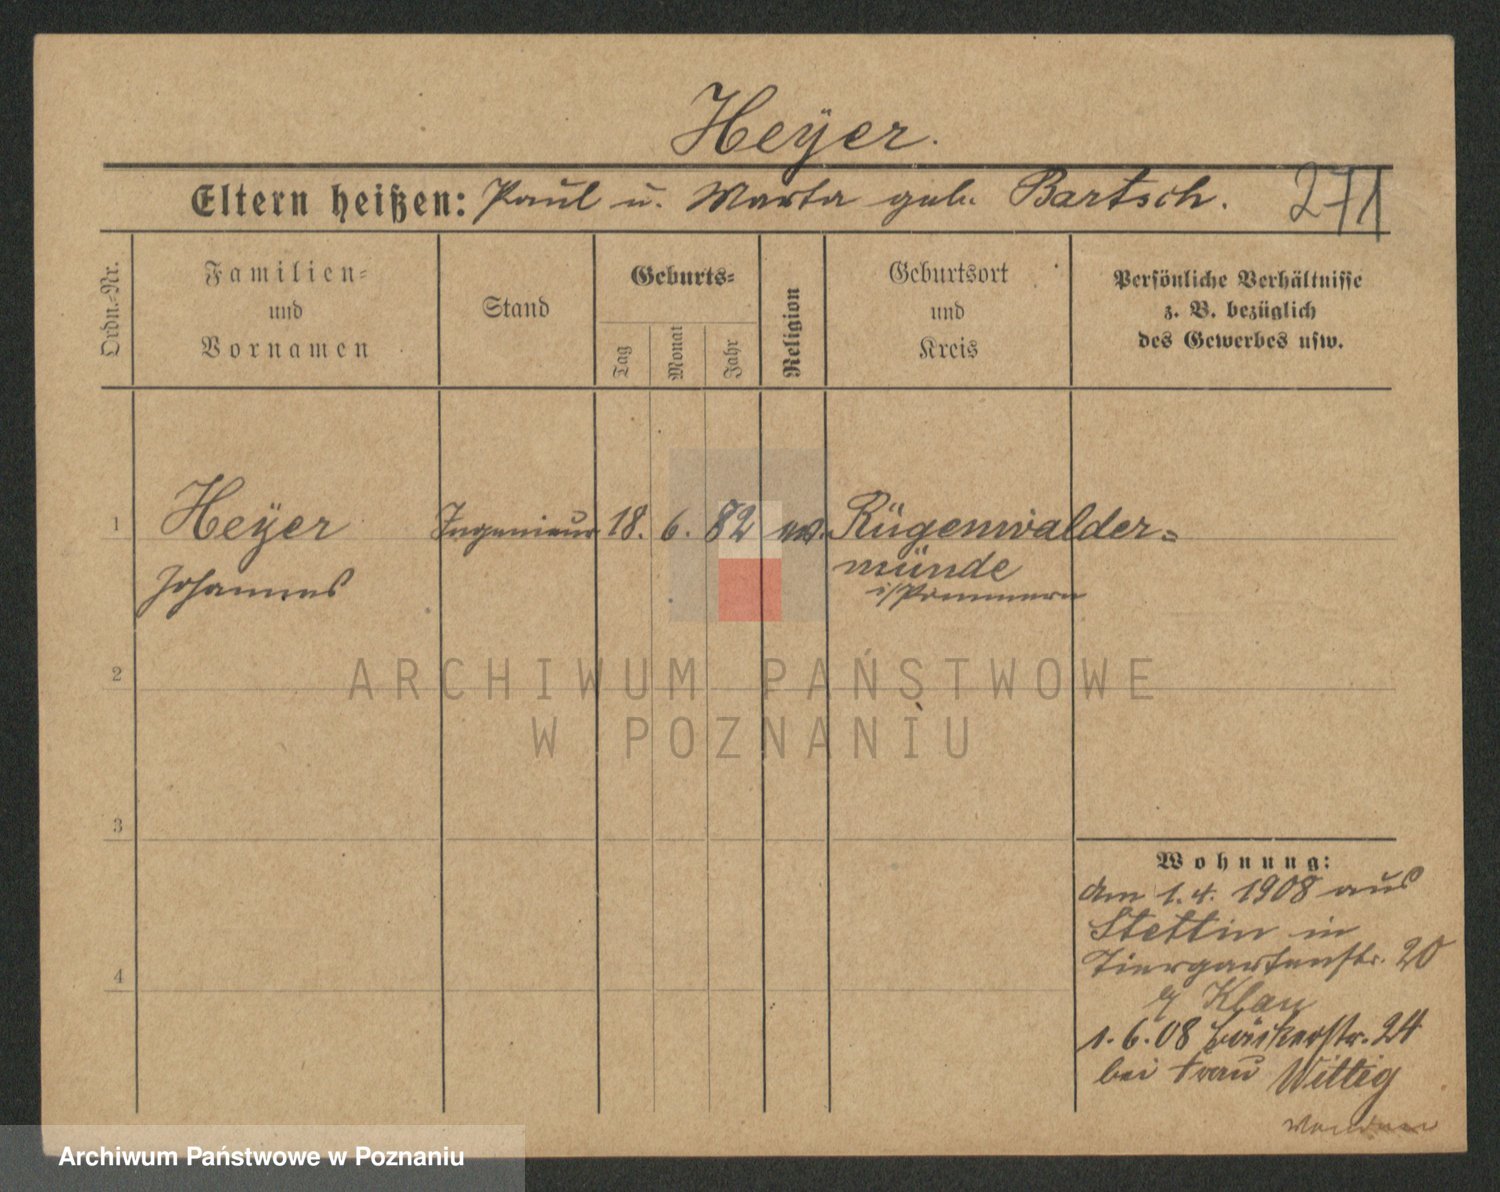 Heÿer.
Eltern heißen: Paul u. Marta geb. Bartsch. 271
Ordn.-Nr.
Familien-
und
Vornamen
Stand
Geburts-
Tag
Monat
Jahr
Religion
Geburtsort
und
Kreis
Persönliche Verhältnisse
z. B. bezüglich
des Gewerbes usw.
1 Heÿer Ingenieur 18. 6. 82 ev. Rügenwalder-
Johannes münde
i/Pommern
2
3
4
Wohnung:
Am 1. 4. 1908 aus
Stettin in
Tiergartenstr. 20
Klau
1. 6. 08 Bäckerstr. 24
bei Frau Wittig
ARCHIWUM PAŃSTWOWE
W POZNANIU
Archiwum Państwowe w Poznaniu